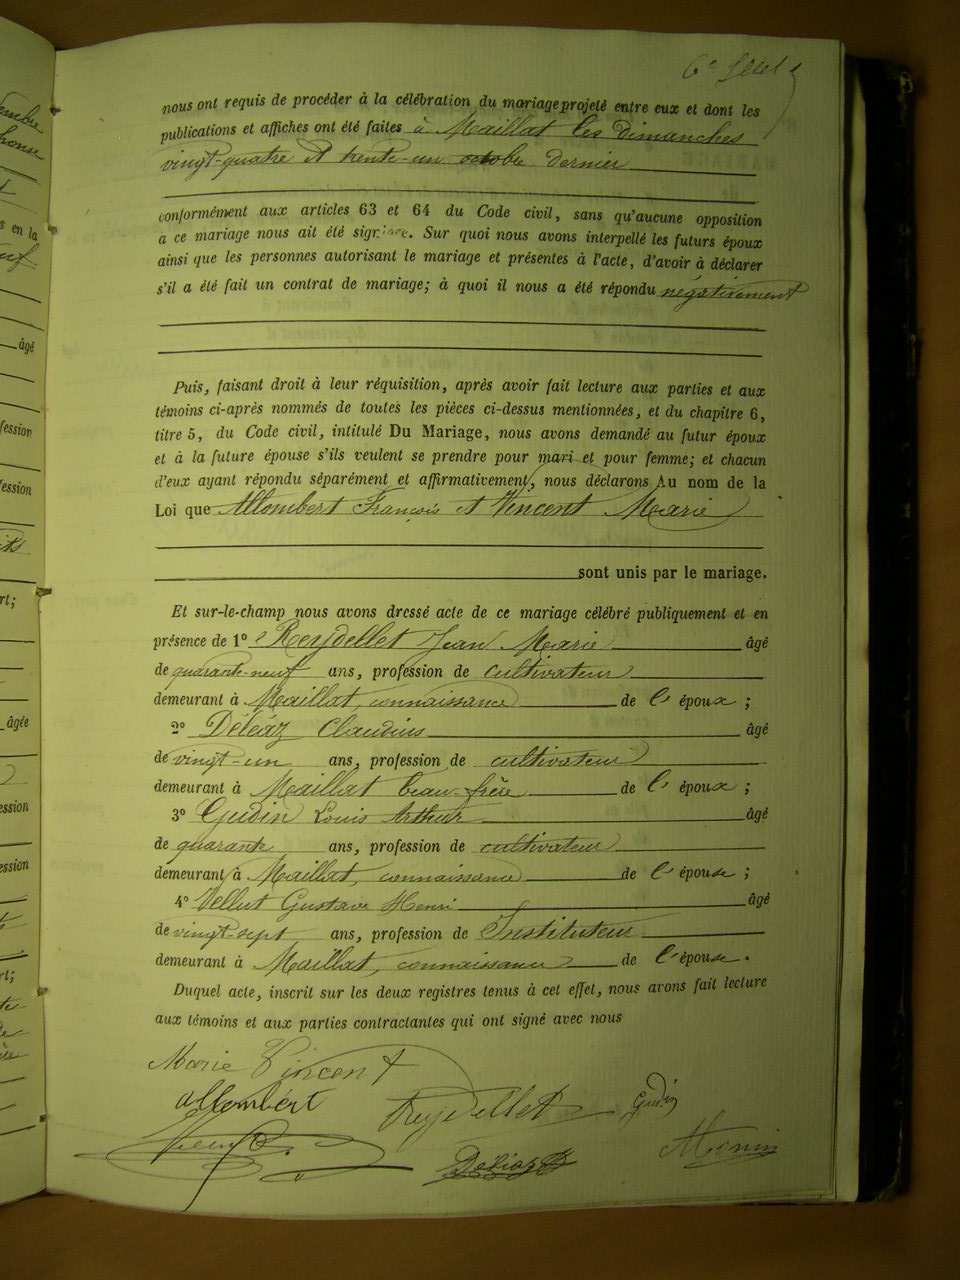 6e feuillet
nous ont requis de procéder à la célébration du mariage projeté entre eux et dont les
publications et affiches ont été faites à Maillat les dimanches
vingt-quatre et trente-un octobre dernier
conformément aux articles 63 et 64 du Code civil, sans qu'aucune opposition
a ce mariage nous ait été signifiée. Sur quoi nous avons interpellé les futurs époux
ainsi que les personnes autorisant le mariage et présentes à l'acte, d'avoir à déclarer
s'il a été fait un contrat de mariage; à quoi il nous a été répondu négativement
Puis, faisant droit à leur réquisition, après avoir fait lecture aux parties et aux
témoins ci-après nommés de toutes les pièces ci-dessus mentionnées, et du chapitre 6,
titre 5, du Code civil, intitulé Du Mariage, nous avons demandé au futur époux
et à la future épouse s'ils veulent se prendre pour mari et pour femme; et chacun
d'eux ayant répondu séparément et affirmativement, nous déclarons Au nom de la
Loi que Allombert François et Vincent Marie
sont unis par le mariage.
Et sur-le-champ nous avons dressé acte de ce mariage célébré publiquement et en
présence de 1° Reydellet Jean Marie âgé
de quarante-neuf ans, profession de cultivateur
demeurant à Maillat, connaissance de l'époux;
2° Déléaz Claudius âgé
de vingt-un ans, profession de cultivateur
demeurant à Maillat beau-frère de l'époux;
3° Gudin Louis Arthur âgé
de quarante ans, profession de cultivateur
demeurant à Maillat, connaissance de l'épouse;
4° Vellut Gustave Henri âgé
de vingt-sept ans, profession de Instituteur
demeurant à Maillat, connaissance de l'épouse.
Duquel acte, inscrit sur les deux registres tenus à cet effet, nous avons fait lecture
aux témoins et aux parties contractantes qui ont signé avec nous
Marie Vincent
allombert Reydellet Gudin
Déléaz Monin